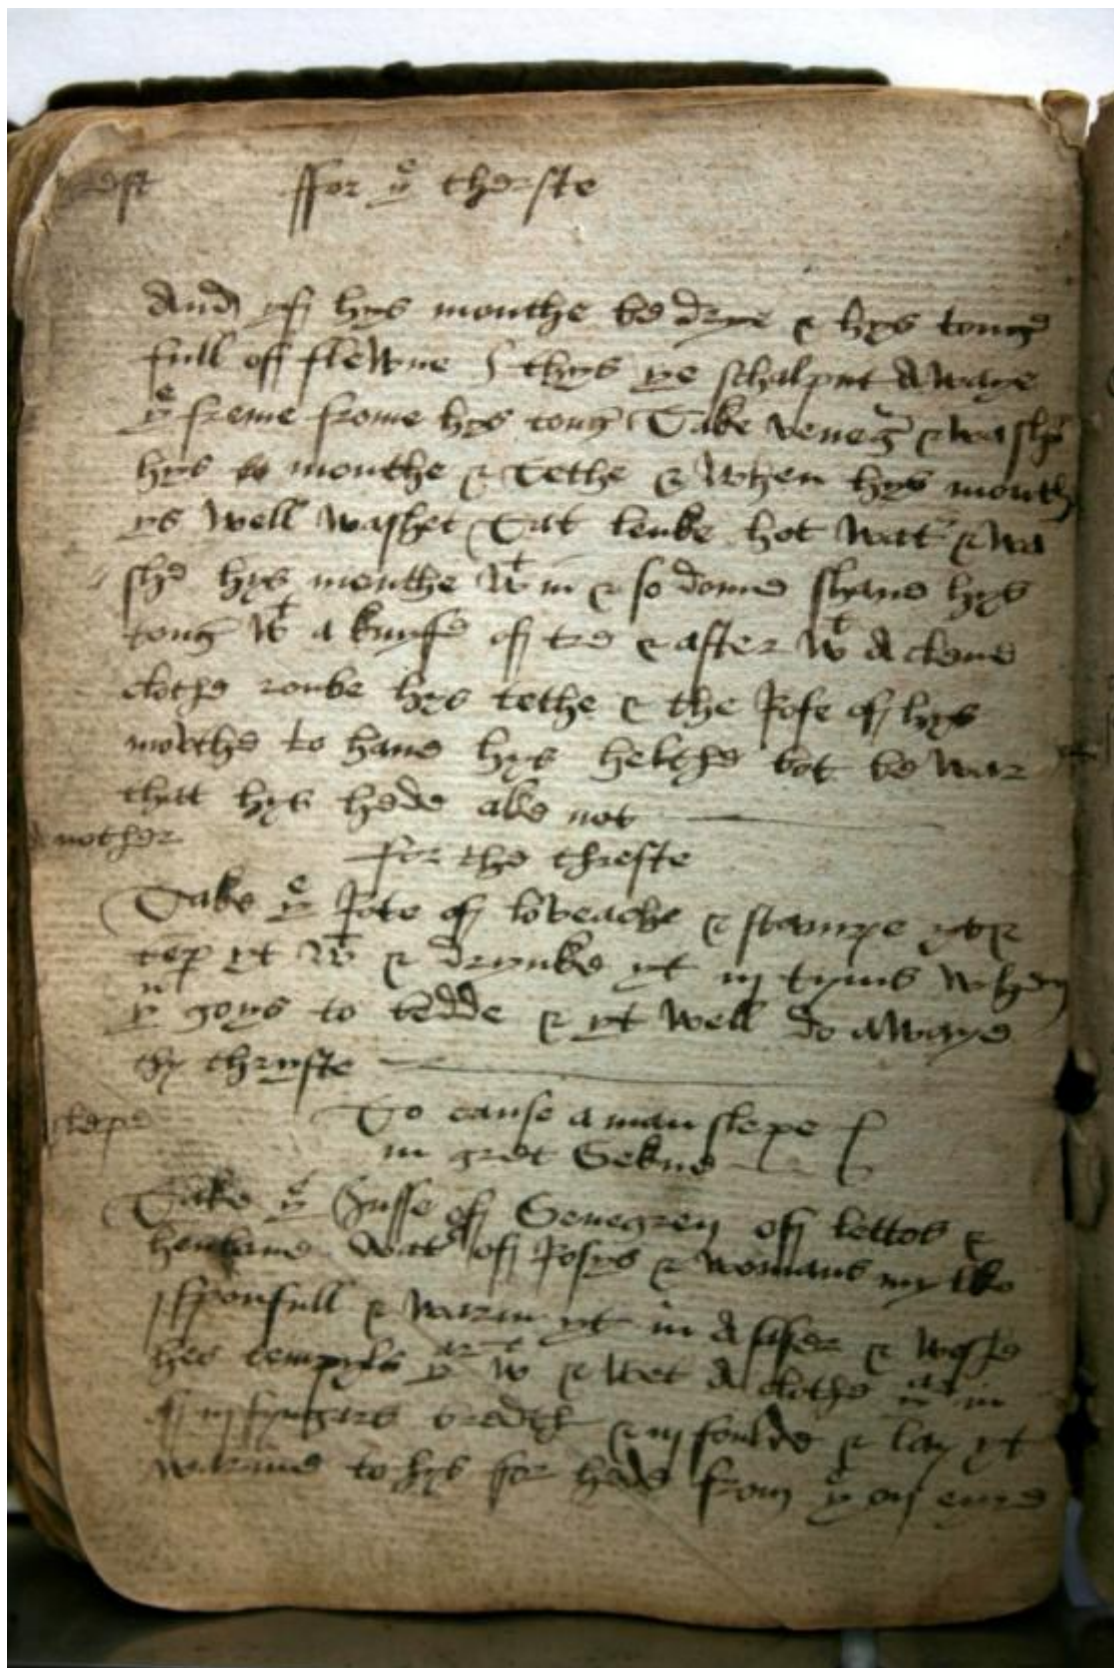 ffor yͤ therste
And yff hys mouthe be drye & hys tong
full off flewme thys ye schalput Awaye
yͤ freme frome hys tong Take veneg & washe
hys mouthe & Tethe & when hys mouth
ys well washet Tat leuke hot wat & wa
she hys mouthe wͭ in & so done shave hys
tong wͭ a knyfe off tre & after wͭ A clene
clothe roube hys tethe & the Rofe off hys
movthe to haue hys helthe bot be war
thatt hys hede ake not
nother
for the threste
Take yͤ Rote off loveache & stampe yt &
tep yt wͭ & drynke yt iij tyms when
yͧ goys to bedde & yt well do awaye
thy thryste
slepe
To cause a man slepe
in gret Sekne
Take yͤ Jusse off Senegren off lettos &
henbane wat off Rosys & womans mylke
j sponfull & warm yt in A siser & weshe
hes tempyls yͬ wͭ & wet A clothe in
iij fyngars bredth & iij foulde & lay yt
warme to hys for hede from yͤ on eyre